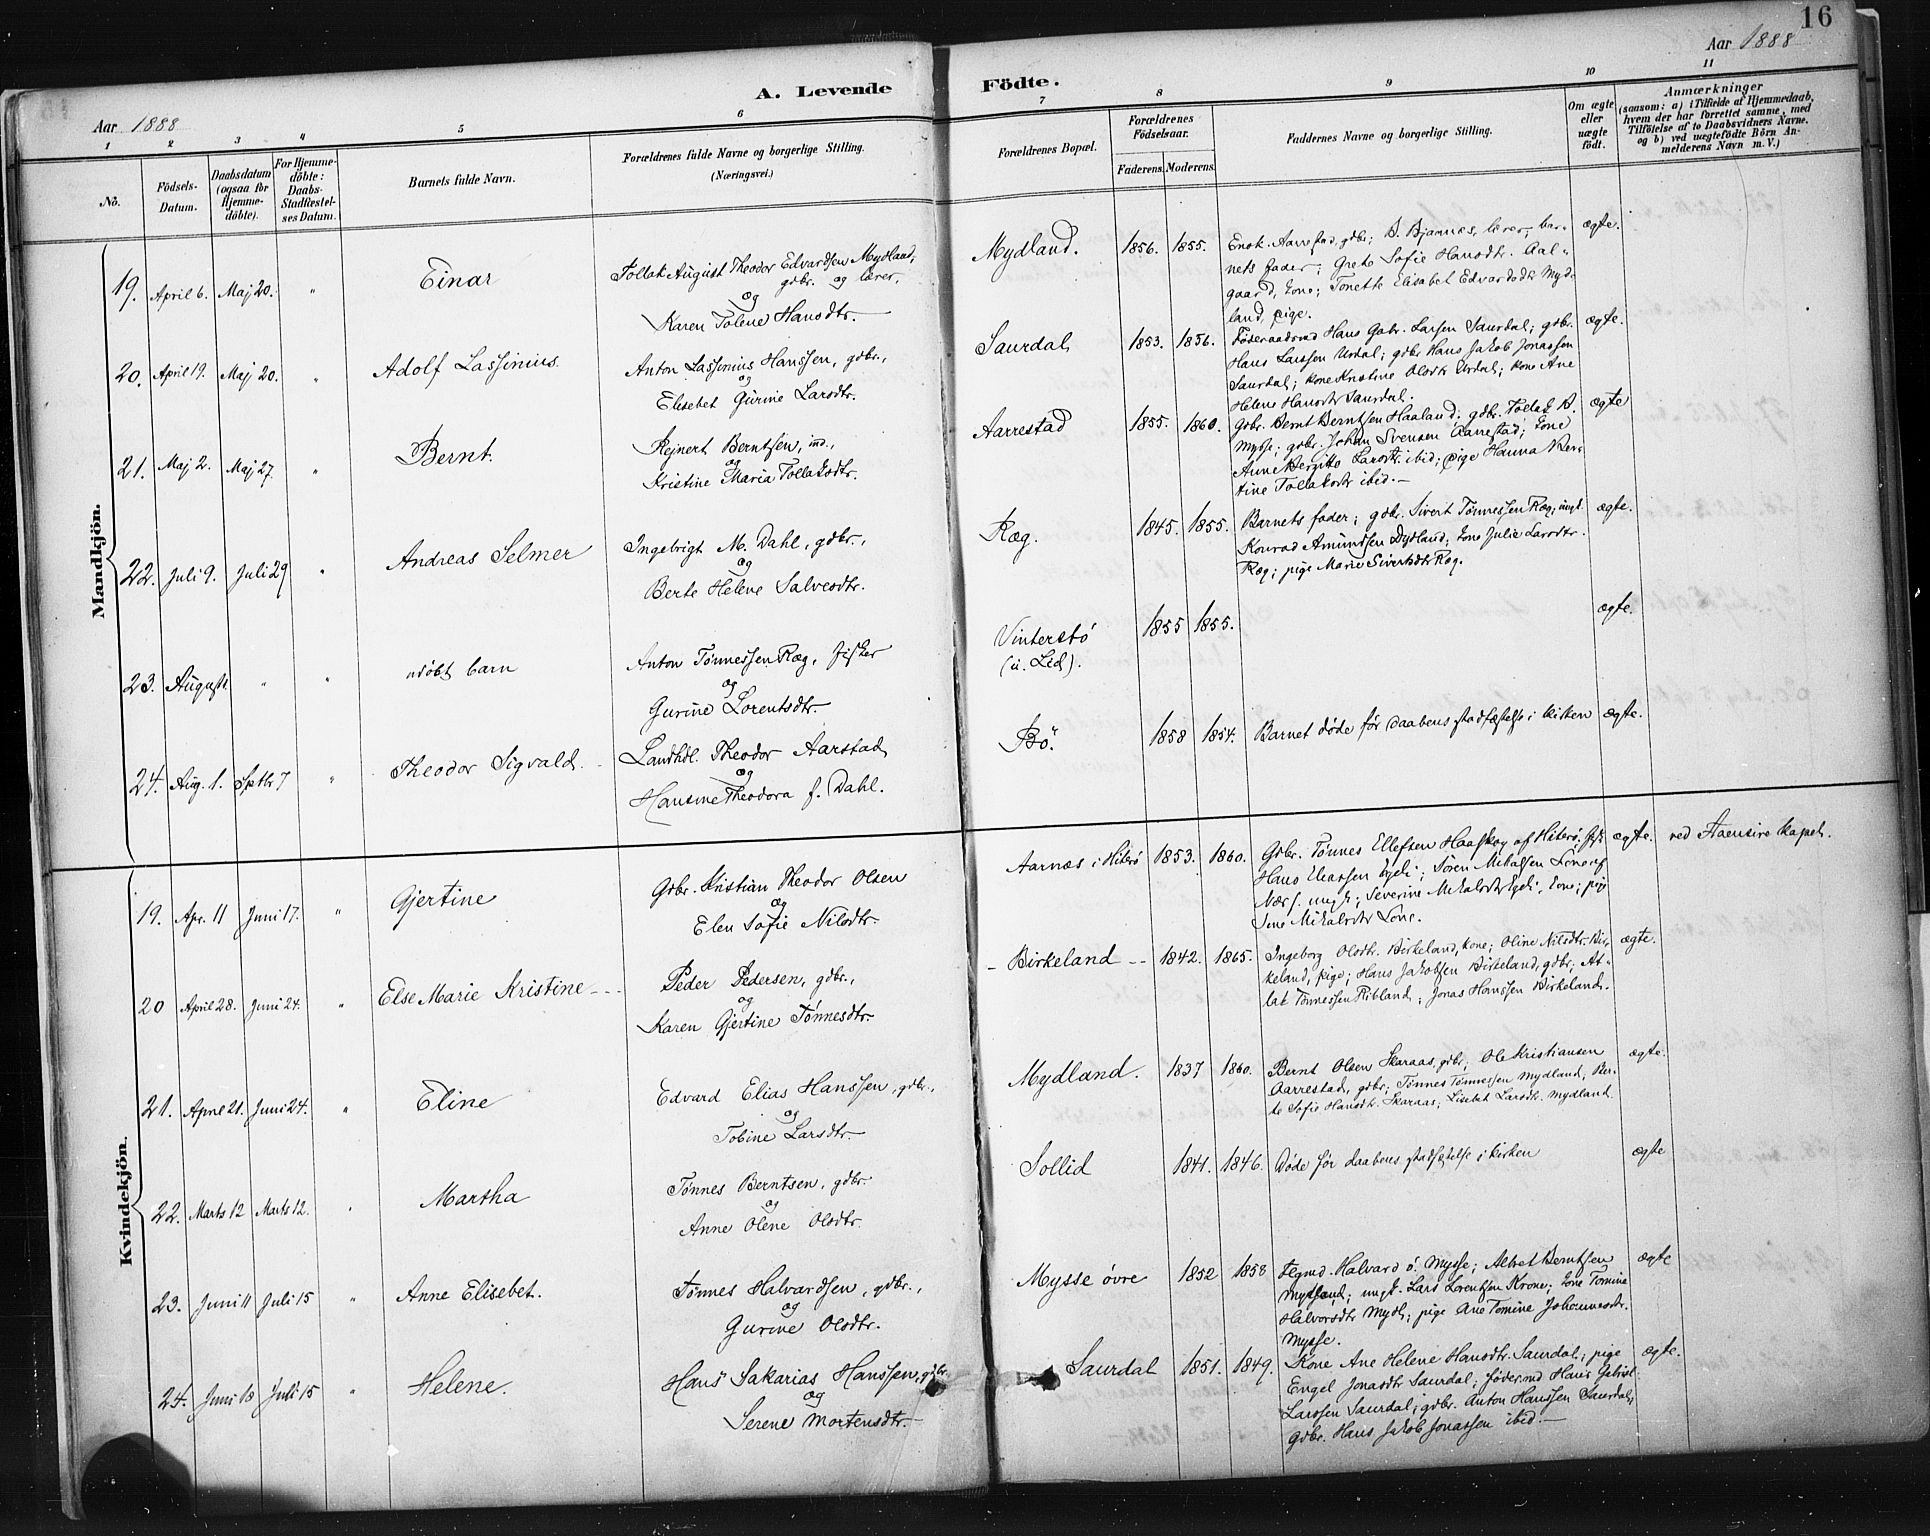 16
Aar 1888
A. Levende Födte.
Aar 1888
1 2 3 4 5 6 7 8 9 10 11
No.
Födsels-Datum.
Daabsdatum (ogsaa for Hjemme-döbte).
For Hjemme-döbte: Daabs-Stadfæstel-ses Datum.
Barnets fulde Navn.
Forældrenes fulde Navne og borgerlige Stilling.
(Næringsvei.)
Forældrenes Bopæl.
Forældrenes Födselsaar.
Faderens. Moderens.
Faddernes Navne og borgerlige Stilling.
Om ægte eller uægte födt.
Anmærkninger
(saasom: a) i Tilfælde af Hjemmedaab,
hvem der har forrettet samme, med
Tilföielse af to Daabsvidners Navne.
og b) ved uægtefödte Börn An-
melderens Navn m. V.)
Mandkjön.
19. April 6. Maj 20. " Einar
Tollak August Theodor Edvardsen Mydland,
gdbr. og lærer,
og
Karen Tolene Hansdtr.
Mydland. 1856. 1855.
Enok Aarrestad, gdbr; B. Bjarnæs, lærer, bar-
nets fader; Grete Sofie Hansdtr. Aal-
gaard, kone; Tonette Elisabet Edvardsdtr Myd-
land, pige.
ægte.
20. April 19. Maj 20. " Adolf Lassinius.
Anton Lassinius Hanssen, gdbr.,
og
Elisebet Gurine Larsdtr.
Saurdal 1853. 1856.
Føderaadsmd Hans Gabr. Larsen Saurdal; gdbr.
Hans Larssen Urdal; gdbr Hans Jakob Jonassen
Saurdal; kone Kristine Olsdtr Urdal; kone Ane
Helene Hansdtr Saurdal.
ægte.
21. Maj 2. Maj 27. " Bernt.
Rejnert Berntsen, ind.,
og
Kristine Maria Tollaksdtr.
Aarrestad 1855. 1860.
Gdbr. Bernt Berntsen Haaland; gdbr. Tollak B.
Mysse; gdbr. Johan Svensen Aarrestad; kone
Anne Bergitte Larsdtr. ibid; pige Hanna Ber-
tine Tollaksdtr ibid.—
ægte
22. Juli 9. Juli 29 " Andreas Selmer
Ingebrigt M. Dahl, gdbr.,
og
Berte Helene Salvesdtr.
Ræg. 1845. 1855.
Barnets fader; gdbr. Sivert Tønnessen Ræg; ungk.
Konrad Amundsen Dydland; kone Julie Larsdtr.
Ræg; pige Marie Sivertsdtr Ræg.
ægte.
23. August " " udöbt barn
Anton Tønnessen Ræg, fisker
og
Gurine Lorentsdtr.
Vinterstö
(u. Lid).
1855 1855.
ægte.
24. Aug. 1. Septbr 7 " Theodor Sigvald.
Landhdl. Theodor Aarstad
og
Hansine Theodora f. Dahl.
Bö. 1858 1854.
Barnet döde før daabens stadfæstelse i kirken ægte.
Kvindekjön.
19. Apr. 11 Juni 17. " Gjertine
Gdbr. Kristian Theodor Olsen
og
Elen Sofie Nilsdtr.
Aarnæs i Hiterö 1853. 1860.
Gdbr. Tønnes Ellefsen Haaskog af Hiterö;
Hans Eliassen Egdi; Sören Mikalsen Lone af
ungk; Severine Mikalsdtr Egdi, kone; pige
Sine Mikalsdtr Lone.
ægte. ved Aaensire kapel.
20 April 28. Juni 24. " Else Marie Kristine
Peder Pedersen, gdbr.,
og
Karen Gjertine Tønnesdtr.
Birkeland 1842. 1865.
Ingeborg Olsdtr. Birkeland, kone; Oline Nilsdtr. Bir-
keland, pige; Hans Jakobsen Birkeland, gdbr; At-
lak Tønnessen Ribland; Jonas Hanssen Birkeland.
ægte.
21. April 21. Juni 24. " Eline
Edvard Elias Hanssen, gdbr.,
og
Tobine Larsdtr.
Mydland. 1837 1860.
Bernt Olsen Skaraas, gdbr; Ole Kristiansen
Aarrestad, gdbr; Tønnes Tønnessen Mydland; Ber-
te Sofie Hansdtr. Skaraas; Lisebet Larsdtr. Mydland.
ægte.
22. Marts 12 Marts 12. " Martha
Tönnes Berntsen, gdbr.
og
Anne Olene Olsdtr.
Sollid 1841. 1846.
Döde för daabens stadfestelse i kirken ægte
23. Juni 11 Juli 15 " Anne Elisebet.
Tønnes Halvardsen, gdbr.,
og
Gurine Olsdtr.
Mysse övre 1852 1858
Halvard ö. Mysse; Albret Berntsen
Mydland; ungk. Lars Lorentsen Krone; kone Tomine
Halvorsdtr Mydl; pige Ane Tomine Johannesdtr.
Mysse.
ægte
24. Juni 18 Juli 15 " Helene.
Hans Sakarias Hanssen, gdbr.
og
Serene Mortensdtr.
Saurdal 1851. 1849.
Kone Ane Helene Hansdtr. Saurdal; pige
Engel Jonasdtr Saurdal; födermd Hans Gabriel
Larssen Saurdal; gdbr. Anton Hanssen Saurdal;
Gdbr. Hans Jakob Jonassen ibid.—
ægte.